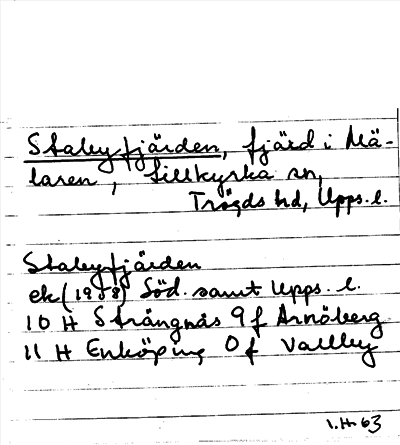 Stalbyfjärden, fjärd i Mä-
laren, Lillkyrka sn,
Trögds hd, Upps. l.
Stalbyfjärden
ek (1958) Söd. samt Upps. l.
10 H Strängnäs 9 f Arnöberg
11 H Enköping 0 f Vallby
1.H. 63